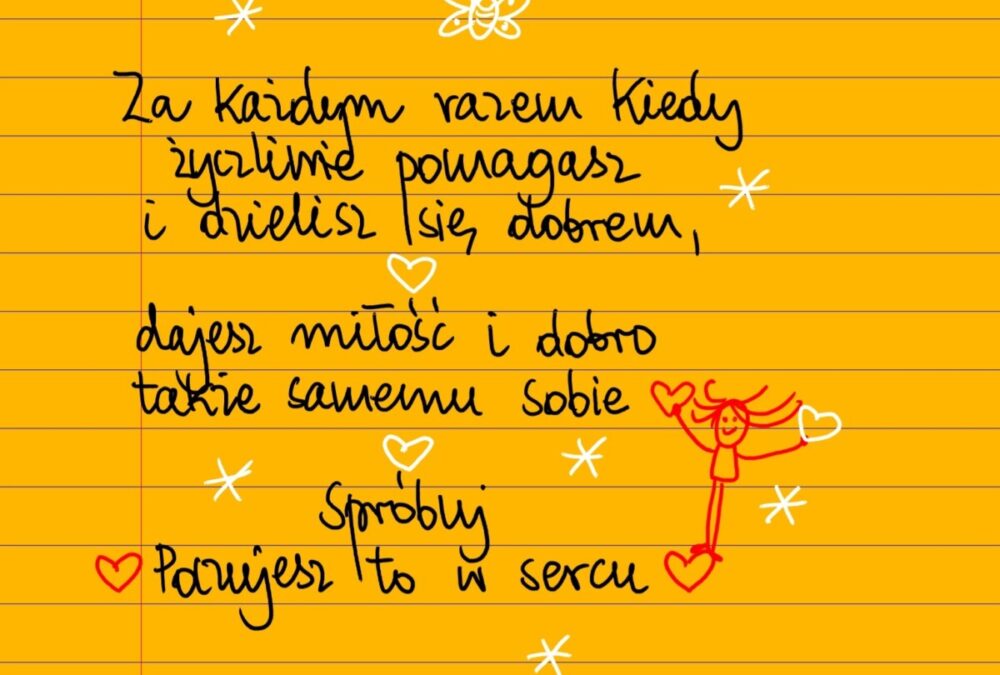 Za każdym razem kiedy
życzliwie pomagasz
i dzielisz się dobrem,
dajesz miłość i dobro
także samemu sobie
Spróbuj
Poczujesz to w sercu